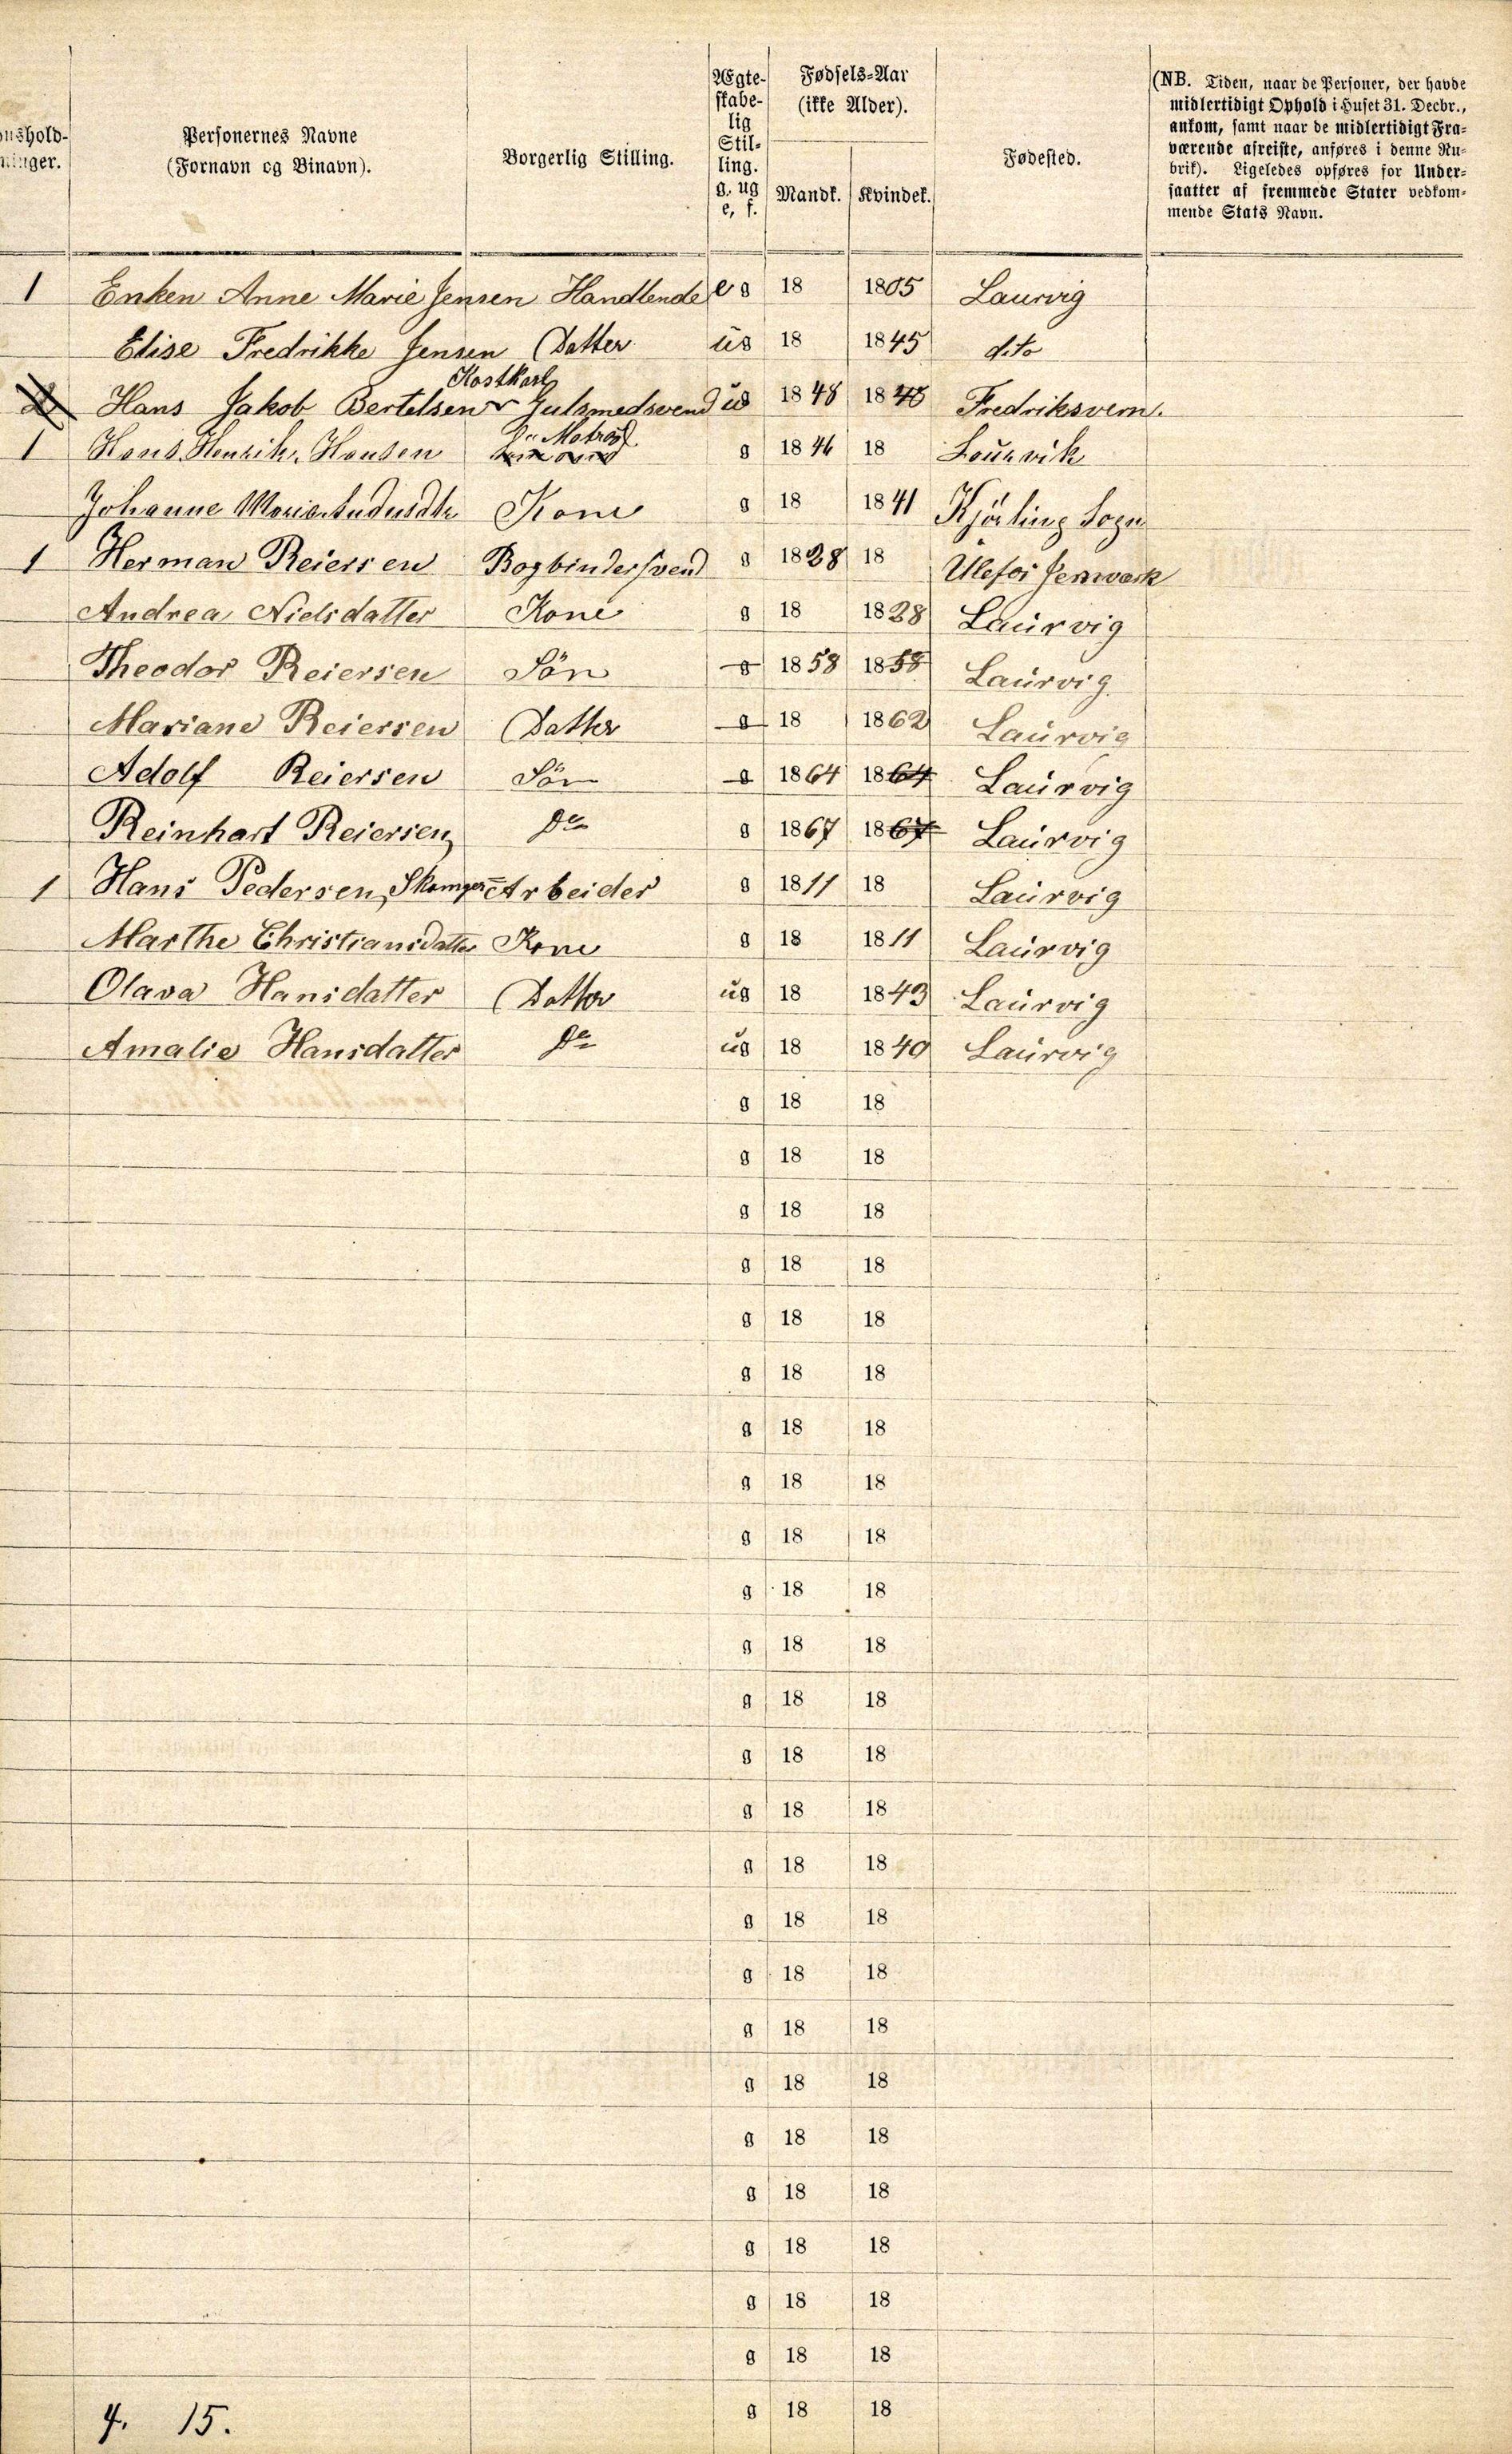 onshold-
ninger.
Personernes Navne
(Fornavn og Binavn).
Borgerlig Stilling.
Ægte-
skabe-
lig
Stil-
ling.
g. ug
e, f.
Fødsels-Aar
(ikke Alder).
Mandk.
Kvindek.
Fødested.
(NB. Tiden, naar de Personer, der havde
midlertidigt Ophold i Huset 31. Decbr.,
ankom, samt naar de midlertidigt Fra-
værende afreiste, anføres i denne Ru-
brik). Ligeledes opføres for Under-
saatter af fremmede Stater vedkom-
mende Stats Navn.
1 Enken Anne Marie Jensen Handlende e g 18 1805 Laurvig
Elise Fredrikke Jensen Datter ug 18 1845 dito
Kostkarl
2 Hans Jakob Bertelsen Gulsmedsvend ug 1848 1848 Fredriksvern.
Matros
1 Hans Henrik Hansen g 1846 18 Laurvik
Johanne Maria Kone g 18 1841 Sogn
1 Herman Reiersen Bogbindersvend g 1828 18 Ulefos Jernværk
Andrea Nielsdatter Kone g 18 1828 Laurvig
Theodor Reiersen Sön g 1858 1858 Laurvig
Mariane Reiersen Datter g 18 1862 Laurvig
Adolf Reiersen Sön g 1864 1864 Laurvig
Reinhart Reiersen Do g 1867 1867 Laurvig
1 Hans Pedersen, Arbeider g 1811 18 Laurvig
Marthe Christiansdatter Kone g 18 1811 Laurvig
Olava Hansdatter Datter ug 18 1843 Laurvig
Amalie Hansdatter Do ug 18 1840 Laurvig
g 18 18
g 18 18
g 18 18
g 18 18
g 18 18
g 18 18
g 18 18
g 18 18
g 18 18
g 18 18
g 18 18
g 18 18
g 18 18
g 18 18
g 18 18
g 18 18
g 18 18
g 18 18
g 18 18
g 18 18
g 18 18
g 18 18
g 18 18
g 18 18
4. 15. g 18 18